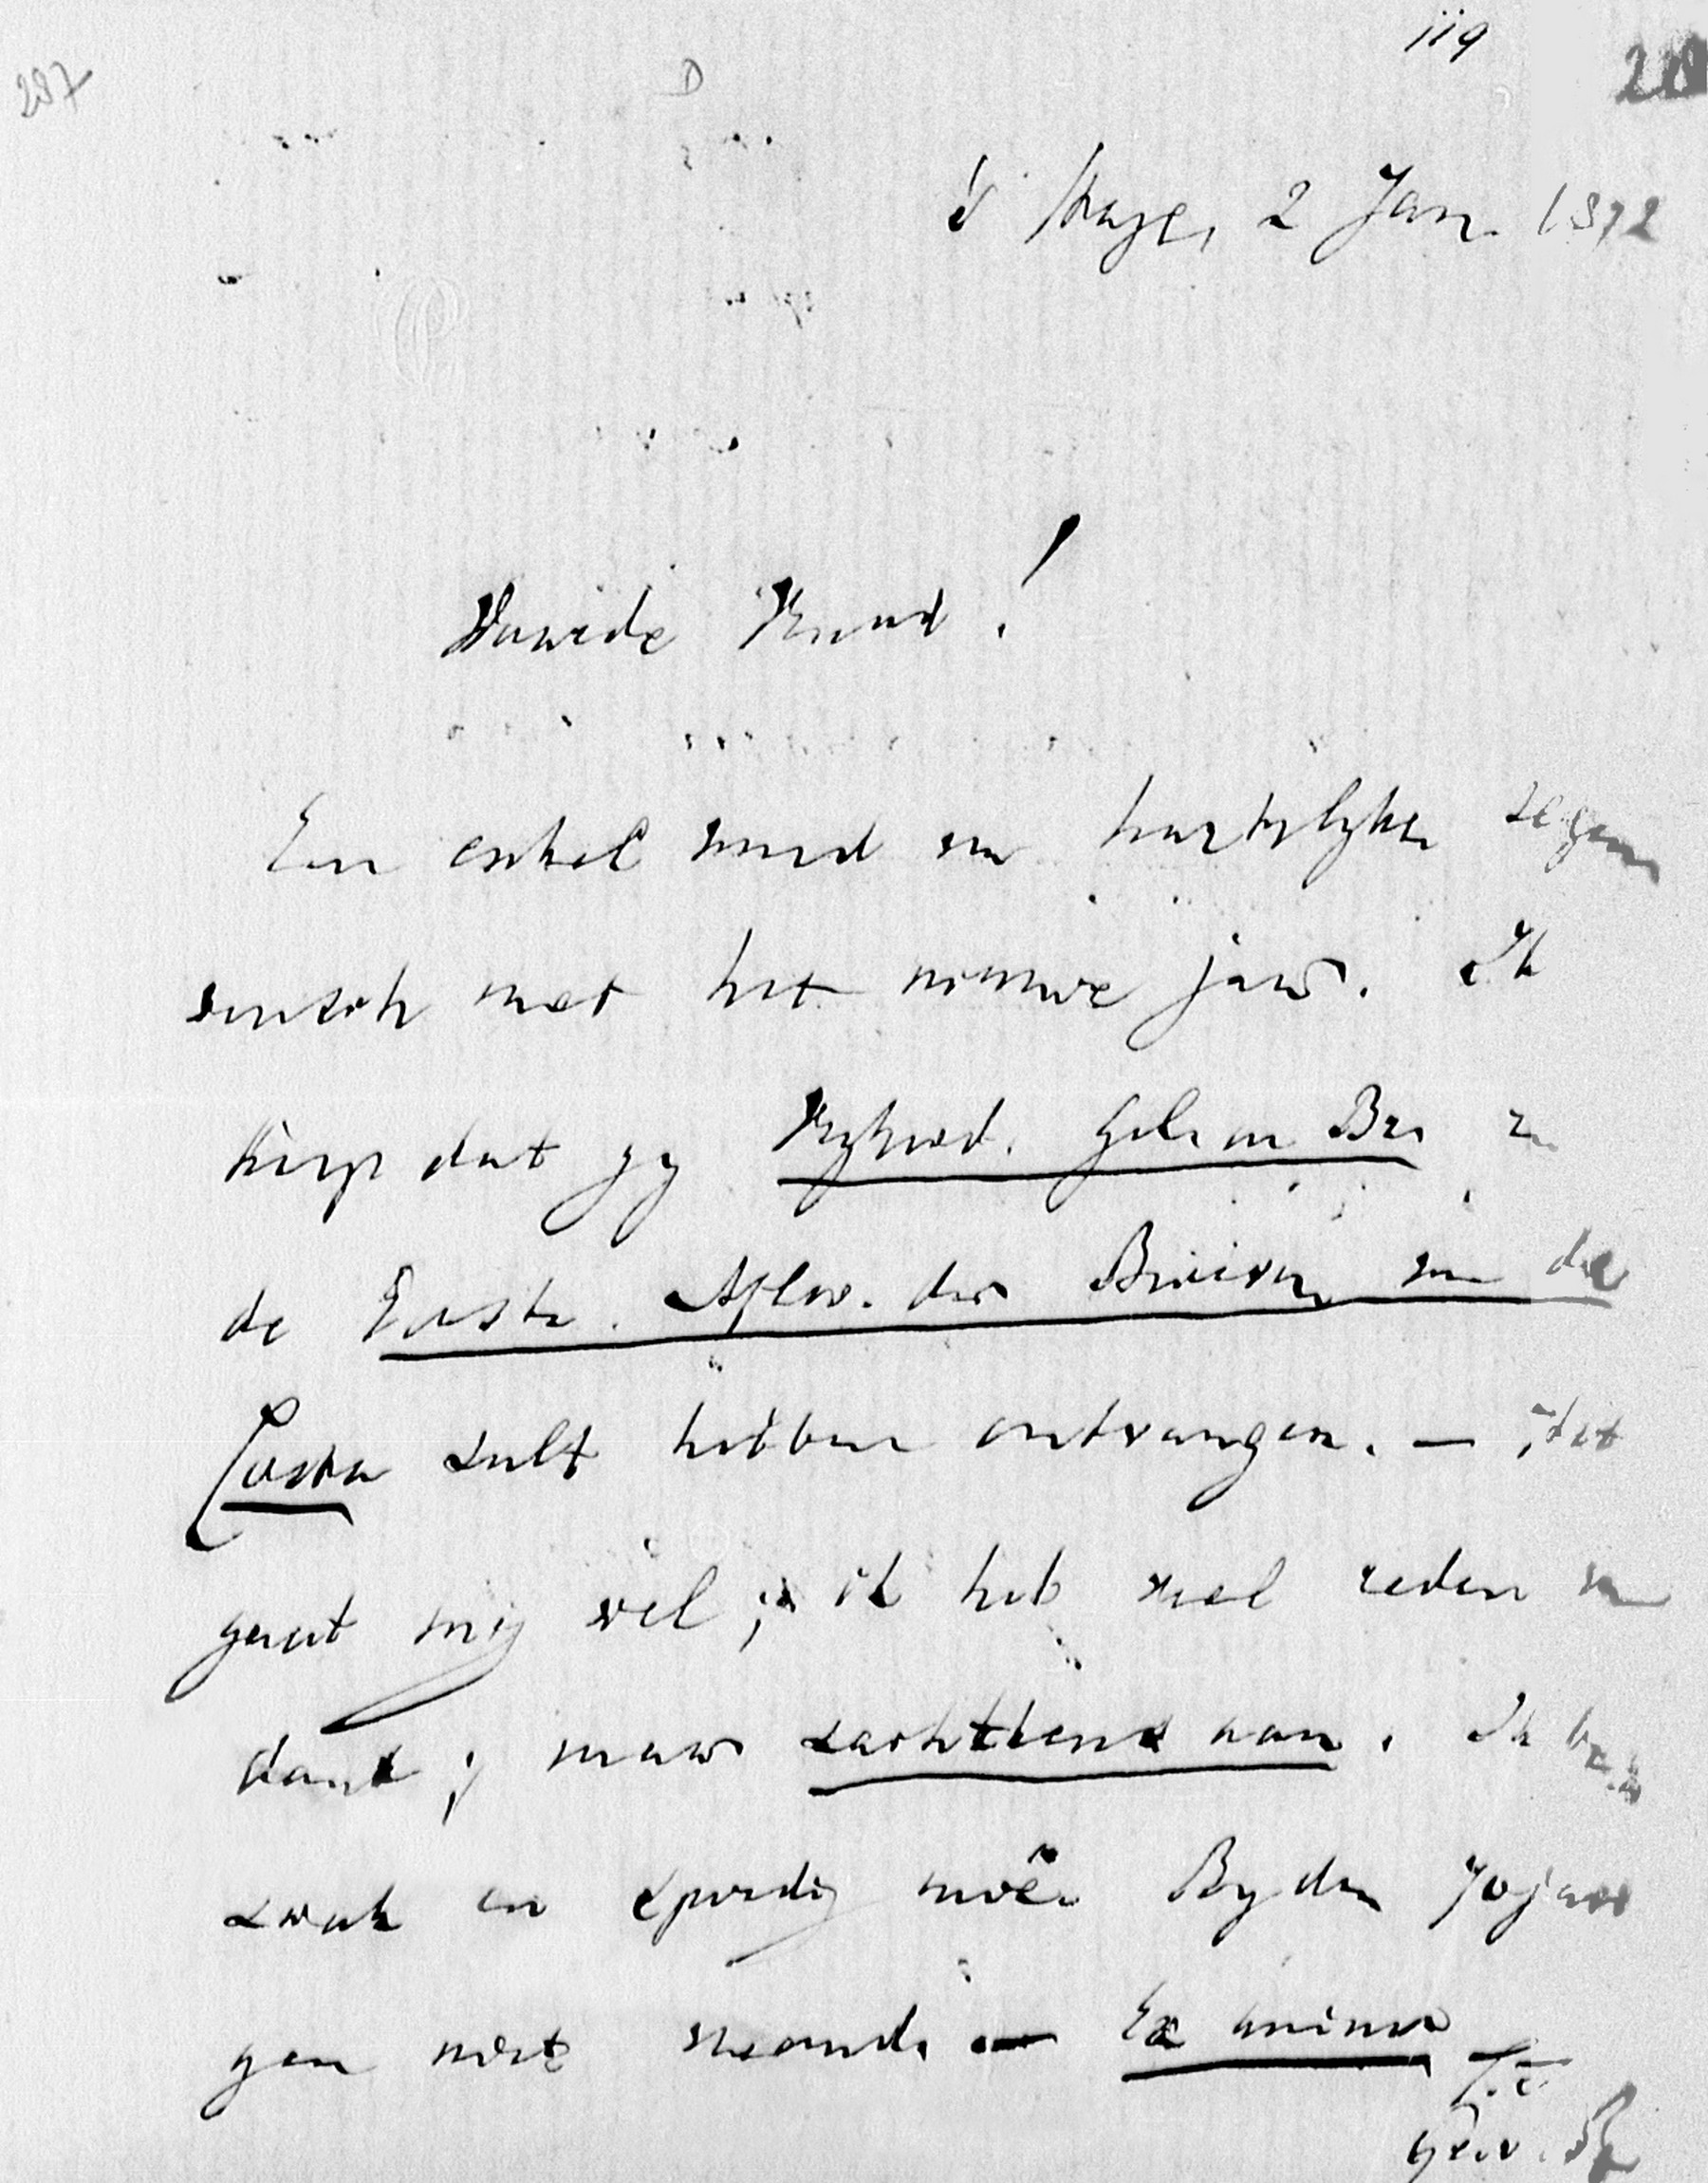 119
287
D
's Hage, 2 Jan. 1872
Waarde Vriend!
Een enkel woord van hartelyken zegen
wensch met het nieuwe jaar. Ik
hoop dat gy en
de Eerste Aflev. der Brieven van da
Costa zult hebben ontvangen. — Het
gaat mij wel; ik heb veel reden van
dank; maar zachtkens aan. Ik ben
zwak en spoedig moê. By den 70jari
gen niet vreemd. — Ex animo
T.t.